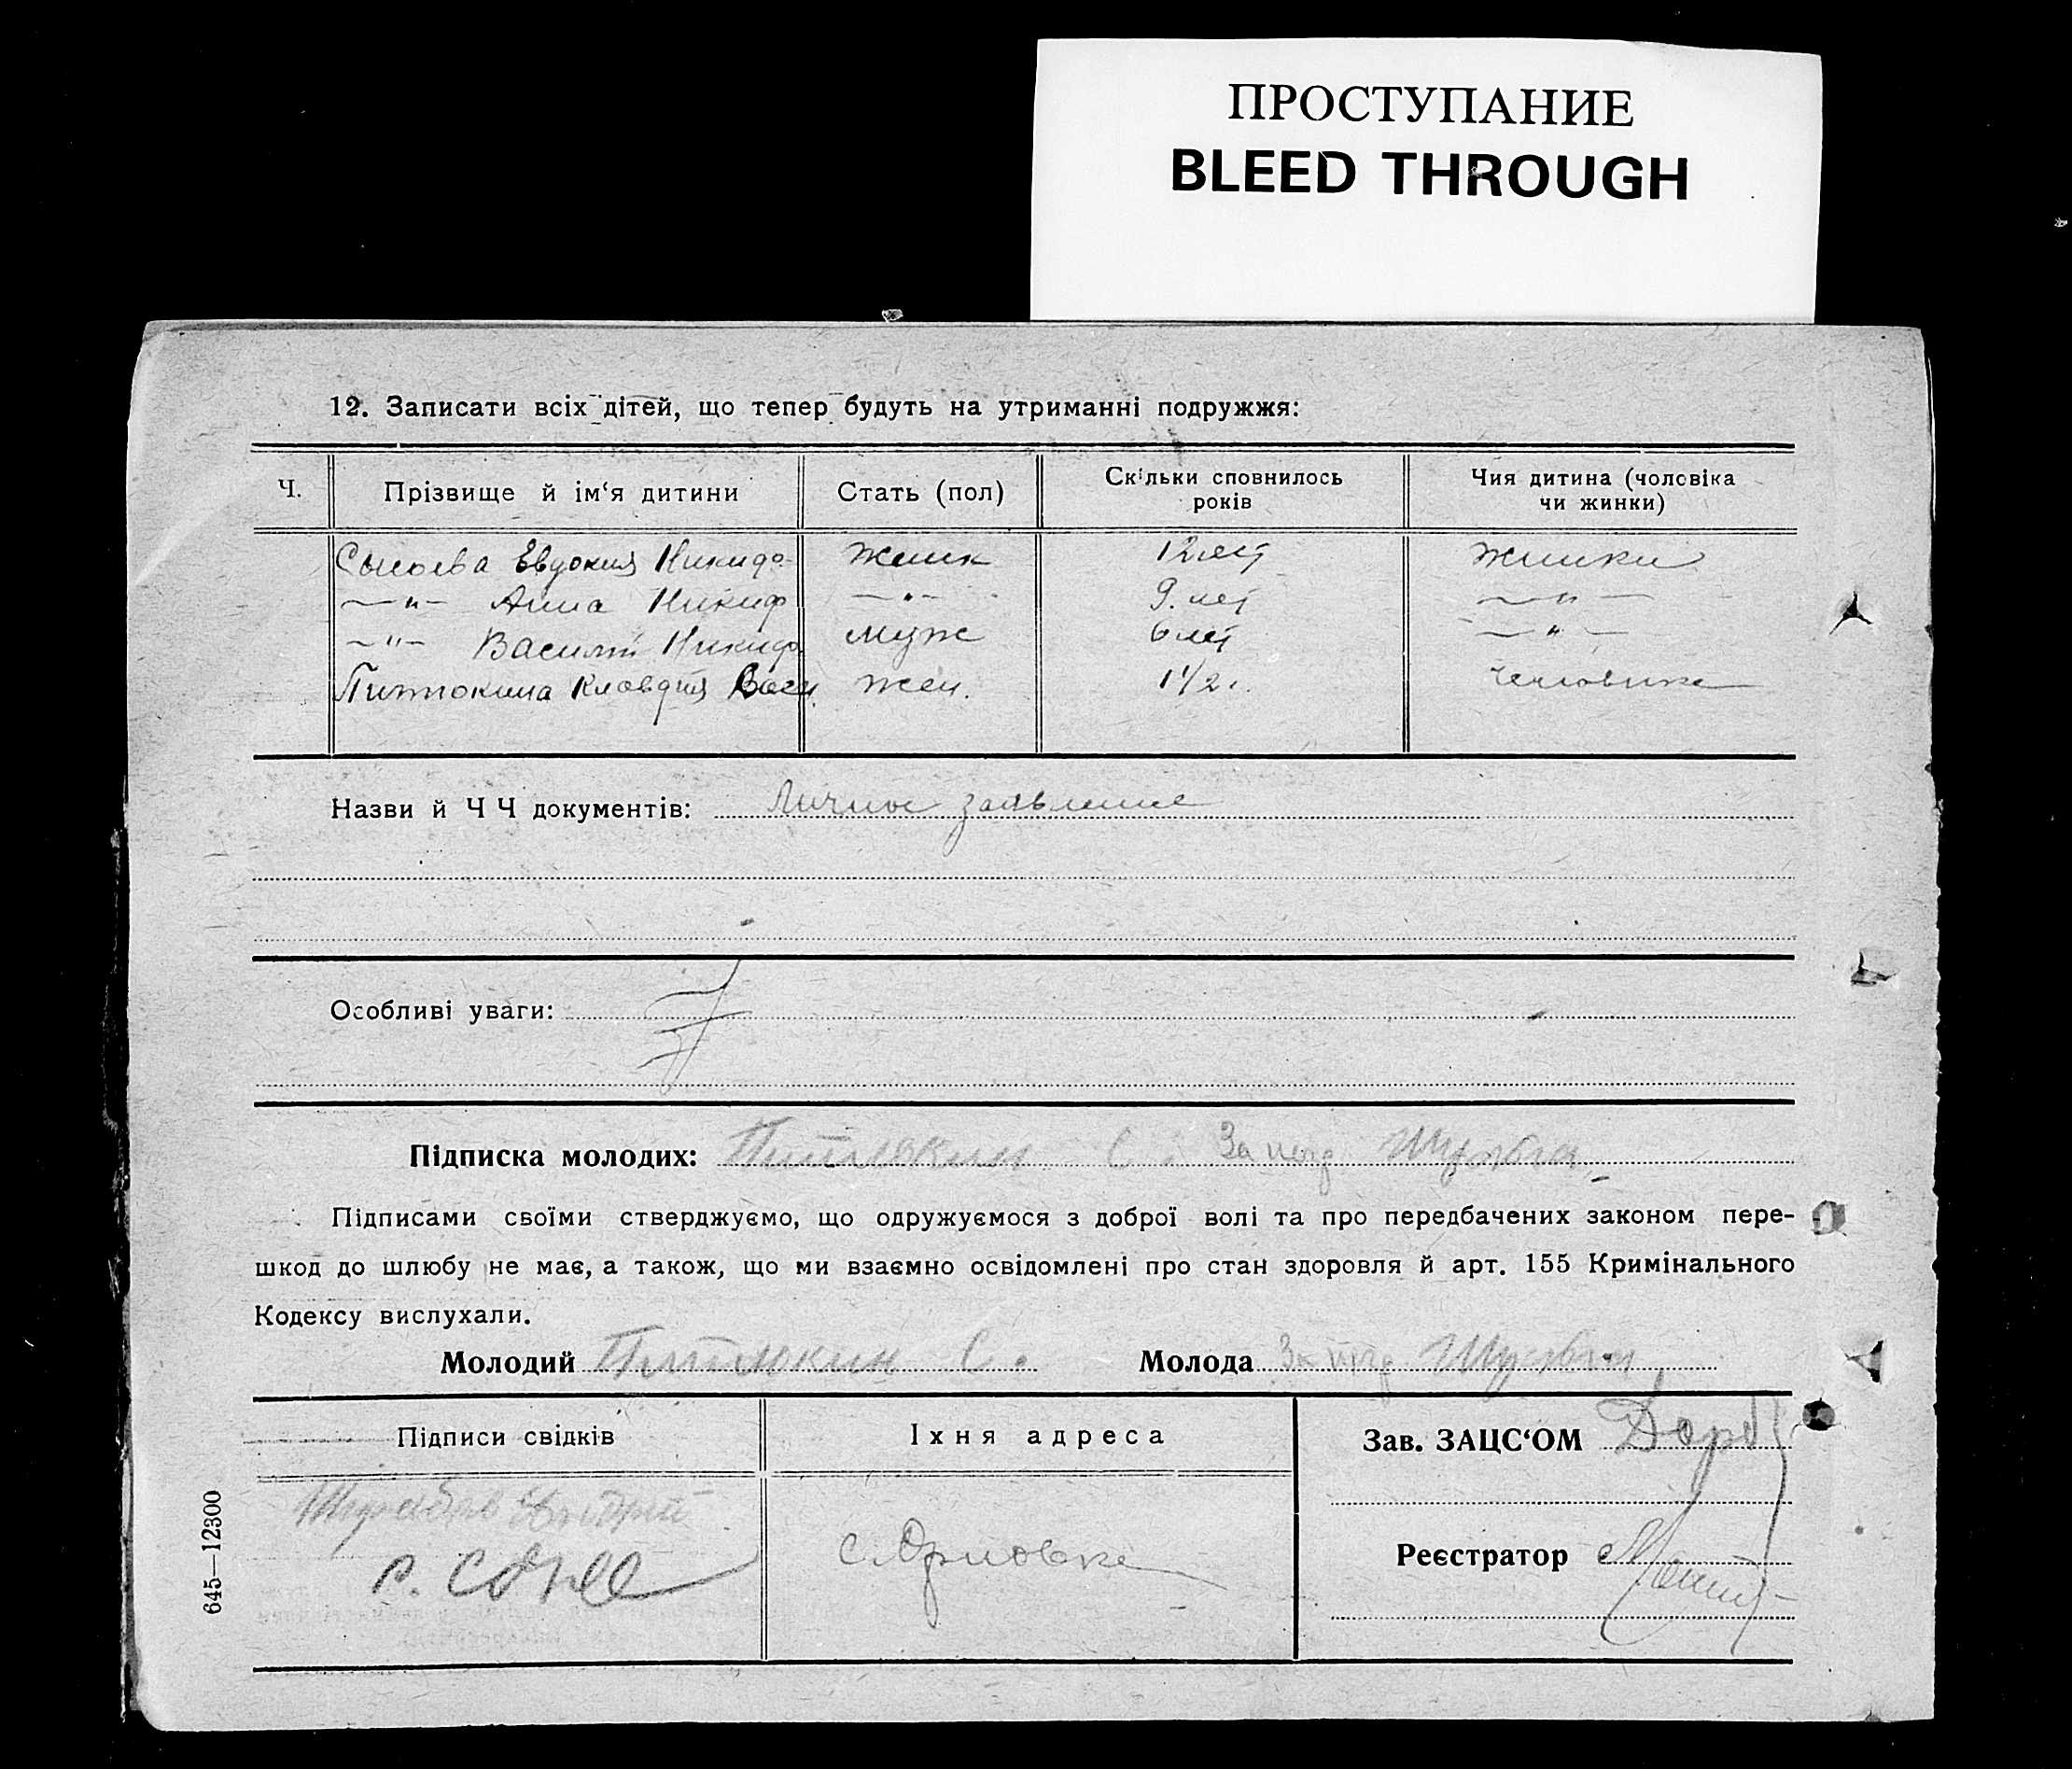 ПРОСТУПАНИЕ
BLEED THROUGH
12. Записати всіх дітей, що тепер будуть на утриманні подружжя:
Ч. Прізвище й ім‘я дитини Стать (пол) Скільки сповнилось років Чия дитина (чоловіка чи жинки)
Евдокия Никифо- Женск 12 лет Жинки
—„— Анна Никиф —„— 9. лет —„—
—„— Василий Никиф. муж 6 лет —„—
Клавдия Васи. жен. 1 1/2 г.
Назви й Ч Ч документів: Личное заявление
Особливі уваги:
Підписка молодих: С. За негр
Підписами своїми стверджуємо, що одружуємося з доброї волі та про передбачених законом пере-
шкод до шлюбу не має, а також, що ми взаємно освідомлені про стан здоровля й арт. 155 Кримінального
Кодексу вислухали.
Молодий С. Молода За негр
Підписи свідків Їхня адреса Зав. ЗАЦС‘ОМ
Реєстратор
645—12300